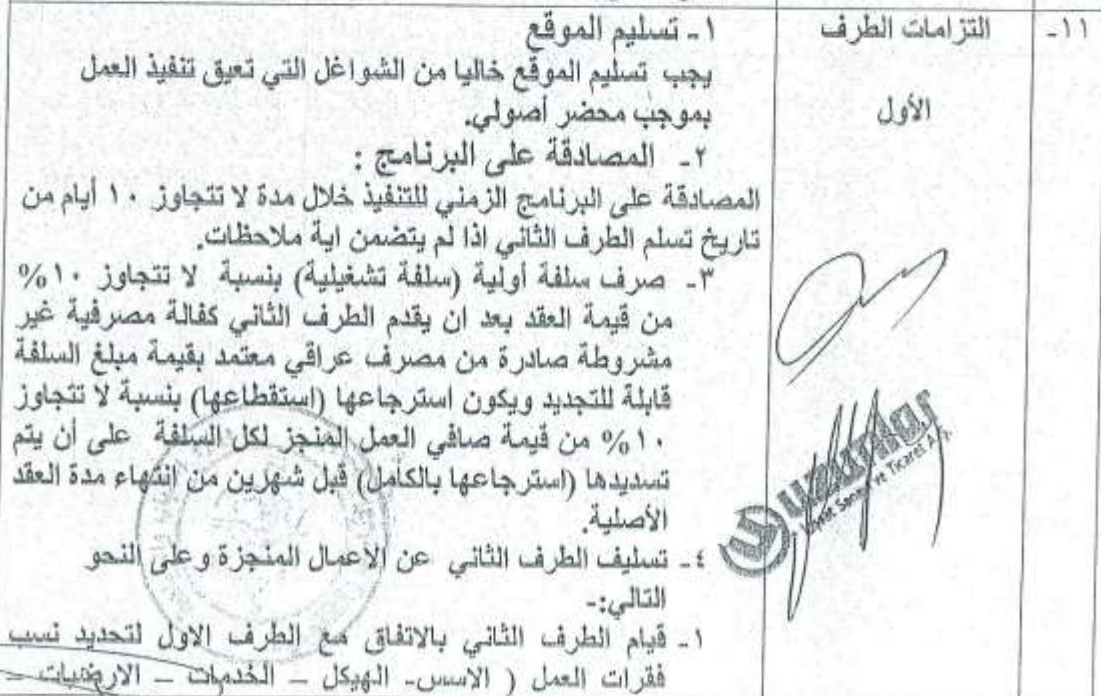 ١١- التزامات الطرف
الأول
١- تسليم الموقع
يجب تسليم الموقع خاليا من الشواغل التي تعيق تنفيذ العمل
بموجب محضر أصولي.
٢- المصادقة على البرنامج :
المصادقة على البرنامج الزمني للتنفيذ خلال مدة لا تتجاوز ١٠ أيام من
تاريخ تسلم الطرف الثاني اذا لم يتضمن اية ملاحظات.
٣- صرف سلفة أولية (سلفة تشغيلية) بنسبة لا تتجاوز ١٠%
من قيمة العقد بعد ان يقدم الطرف الثاني كفالة مصرفية غير
مشروطة صادرة من مصرف عراقي معتمد بقيمة مبلغ السلفة
قابلة للتجديد ويكون استرجاعها (استقطاعها) بنسبة لا تتجاوز
١٠% من قيمة صافي العمل المنجز لكل السلفة على أن يتم
تسديدها (استرجاعها بالكامل) قبل شهرين من انتهاء مدة العقد
الأصلية.
٤- تسليف الطرف الثاني عن الاعمال المنجزة وعلى النحو
التالي:-
١- قيام الطرف الثاني بالاتفاق مع الطرف الاول لتحديد نسب
فقرات العمل ( الاسس- الهيكل – الخدمات – الارضيات –